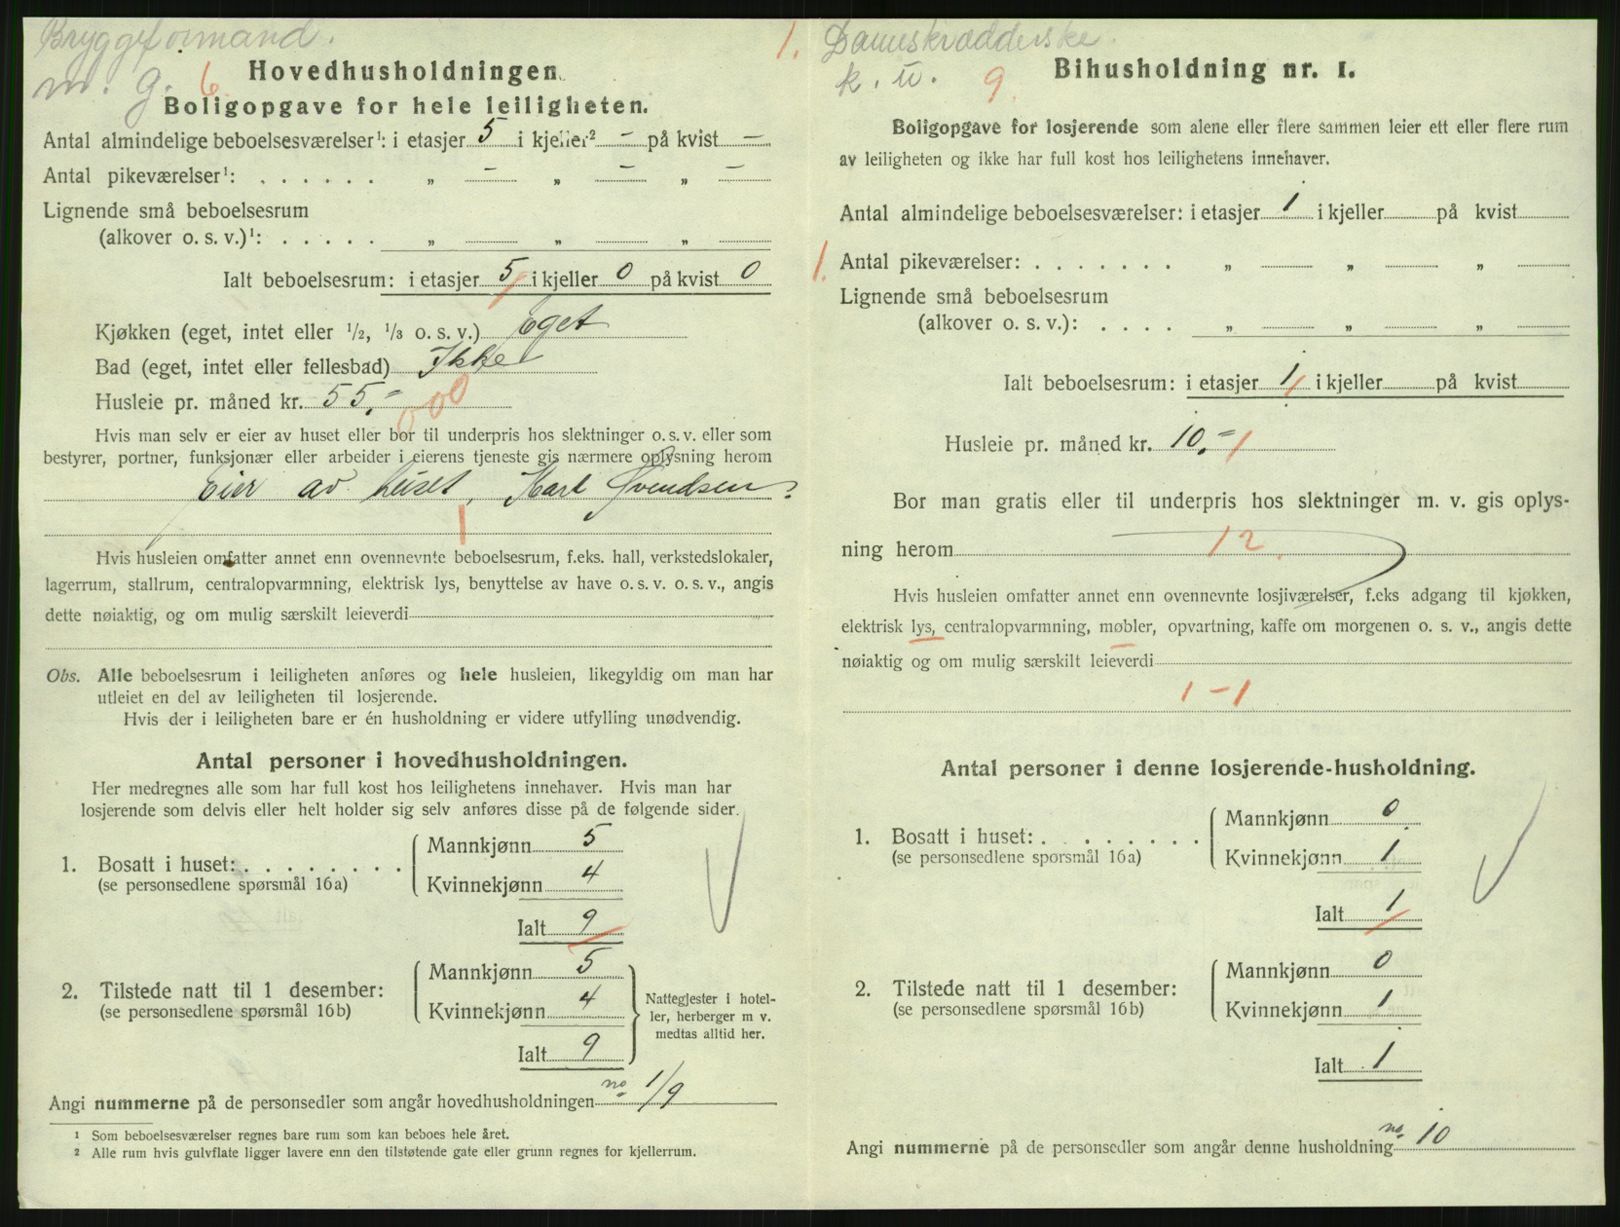 Bryggeformand.
m. g. 6.
Hovedhusholdningen.
Boligopgave for hele leiligheten.
Antal almindelige beboelsesværelser¹: i etasjer 5 i kjeller² — på kvist —
Antal pikeværelser¹: . . . . . . „ — „ — „ —
Lignende små beboelsesrum
(alkover o. s. v.)¹: . . . . . „ „ „
Ialt beboelsesrum: i etasjer 5 i kjeller 0 på kvist 0
Kjøkken (eget, intet eller 1/2, 1/3 o. s. v.) Eget
Bad (eget, intet eller fellesbad) Ikke
Husleie pr. måned kr. 55.- 000
Hvis man selv er eier av huset eller bor til underpris hos slektninger o. s. v. eller som
bestyrer, portner, funksjonær eller arbeider i eierens tjeneste gis nærmere oplysning herom
Eier av huset, Karl Svendsen.
1
Hvis husleien omfatter annet enn ovennevnte beboelsesrum, f.eks. hall, verkstedslokaler,
lagerrum, stallrum, centralopvarmning, elektrisk lys, benyttelse av have o. s. v. o. s. v., angis
dette nøiaktig, og om mulig særskilt leieverdi
Obs. Alle beboelsesrum i leiligheten anføres og hele husleien, likegyldig om man har
utleiet en del av leiligheten til losjerende.
Hvis der i leiligheten bare er én husholdning er videre utfylling unødvendig.
Antal personer i hovedhusholdningen.
Her medregnes alle som har full kost hos leilighetens innehaver. Hvis man har
losjerende som delvis eller helt holder sig selv anføres disse på de følgende sider.
Mannkjønn 5
1. Bosatt i huset: . . . . . . . .
(se personsedlene spørsmål 16a)
Kvinnekjønn 4
Ialt 9
Mannkjønn 5
2. Tilstede natt til 1 desember:
(se personsedlene spørsmål 16b)
Kvinnekjønn 4
Ialt 9
Nattegjester i hotel-
ler, herberger m v.
medtas alltid her.
Angi nummerne på de personsedler som angår hovedhusholdningen no 1/9
¹ Som beboelsesværelser regnes bare rum som kan beboes hele året.
² Alle rum hvis gulvflate ligger lavere enn den tilstøtende gate eller grunn regnes for kjellerrum.
1. Dameskrædderske.
k. u. 9.
Bihusholdning nr. 1.
Boligopgave for losjerende som alene eller flere sammen leier ett eller flere rum
av leiligheten og ikke har full kost hos leilighetens innehaver.
Antal almindelige beboelsesværelser: i etasjer 1 i kjeller på kvist
1. Antal pikeværelser: . . . . . . . „ „ „
Lignende små beboelsesrum
(alkover o. s. v.): . . . . „ „ „
Ialt beboelsesrum: i etasjer 1 i kjeller på kvist
Husleie pr. måned kr. 10.- 1
Bor man gratis eller til underpris hos slektninger m. v. gis oplys-
ning herom 12.
Hvis husleien omfatter annet enn ovennevnte losjiværelser, f.eks adgang til kjøkken,
elektrisk lys, centralopvarmning, møbler, opvartning, kaffe om morgenen o. s. v., angis dette
nøiaktig og om mulig særskilt leieverdi
1 - 1
Antal personer i denne losjerende-husholdning.
Mannkjønn 0
1. Bosatt i huset: . . . . . . .
(se personsedlene spørsmål 16a)
Kvinnekjønn 1
Ialt 1
Mannkjønn 0
2. Tilstede natt til 1 desember:
(se personsedlene spørsmål 16b)
Kvinnekjønn 1
Ialt 1
Angi nummerne på de personsedler som angår denne husholdning no. 10